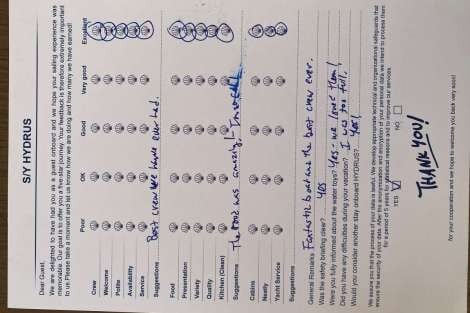 S/Y HYDRUS
Dear Guest,
We are delighted to have had you as a guest onboard and we hope your sailing experience was
memorable. Our goal is to offer you a five-star journey! Your feedback is therefore extremely important
to us. Please take a moment and let us know how we are doing and how many we have earned!
Poor OK Good Very good Excellent
Crew
Welcome
Polite
Availability
Service
Suggestions Best crew we have ever had.
Food
Presentation
Variety
Quality
Kitchen (Clean)
Suggestions The food was amazing!
Cabins
Neatly
Yacht Service
Suggestions
General Remarks Fantastic boat and the best crew ever.
Was the safety briefing clear? ... Yes
Were you fully informed about the water toys? Yes - we loved them!
Did you have any difficulties during your vacation? I was too full.
Would you consider another stay onboard HYDRUS? Yes!
We assure you that the process of your data is lawful. We develop appropriate technical and organizational safeguards that
ensure the security of your data. After the anonymization and encryption of your personal data we intend to process them
for a period of 5 years for statistical reasons and to improve our services.
YES NO
THANK YOU!
for your cooperation and we hope to welcome you back very soon!